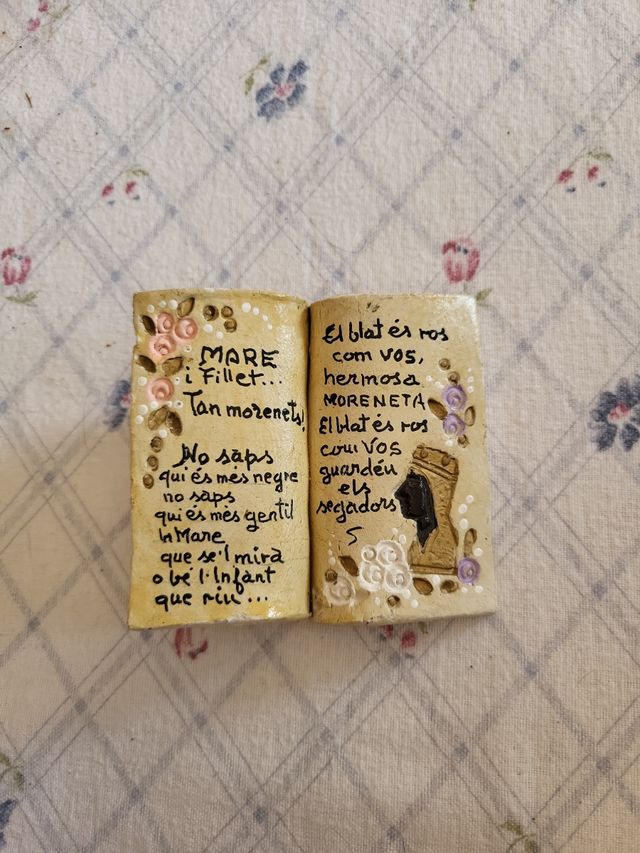 MARE
i Fillet...
Tan morenets!
No saps
qui és més negre
no saps
qui és més gentil
la Mare
que se'l mira
o bé l'Infant
que riu...
El blat és ros
com VOS,
hermosa
MORENETA
El blat és ros
com VOS
guardéu
els
segadors